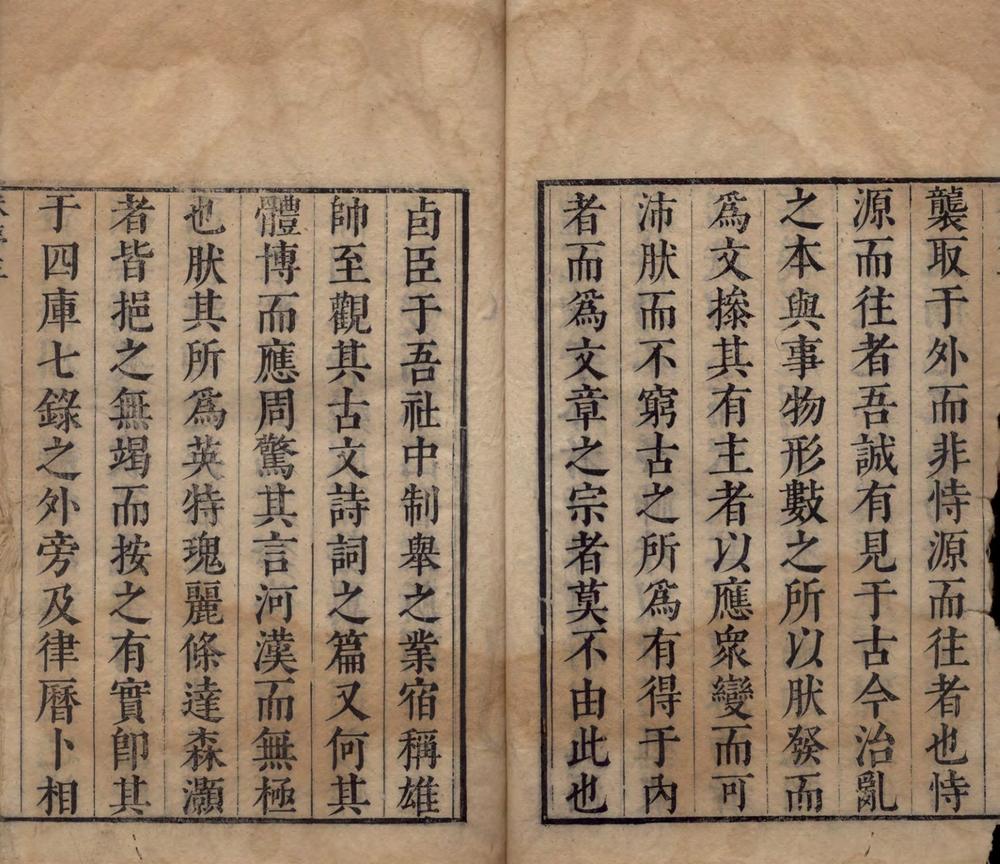 襲取于外而非恃源而往者也恃
源而往者吾誠有見于古今治亂
之本與事物形數之所以肰發而
爲文搽其有主者以應衆變而可
沛肰而不窮古之所爲有得于內
者而爲文章之宗者莫不由此也
卣臣于吾社中制舉之業宿稱雄
帥至觀其古文詩詞之篇又何其
體博而應周驚其言河漢而無極
也肰其所爲英特瑰麗條達森灝
者皆挹之無竭而按之有實卽其
于四庫七錄之外旁及律曆卜相